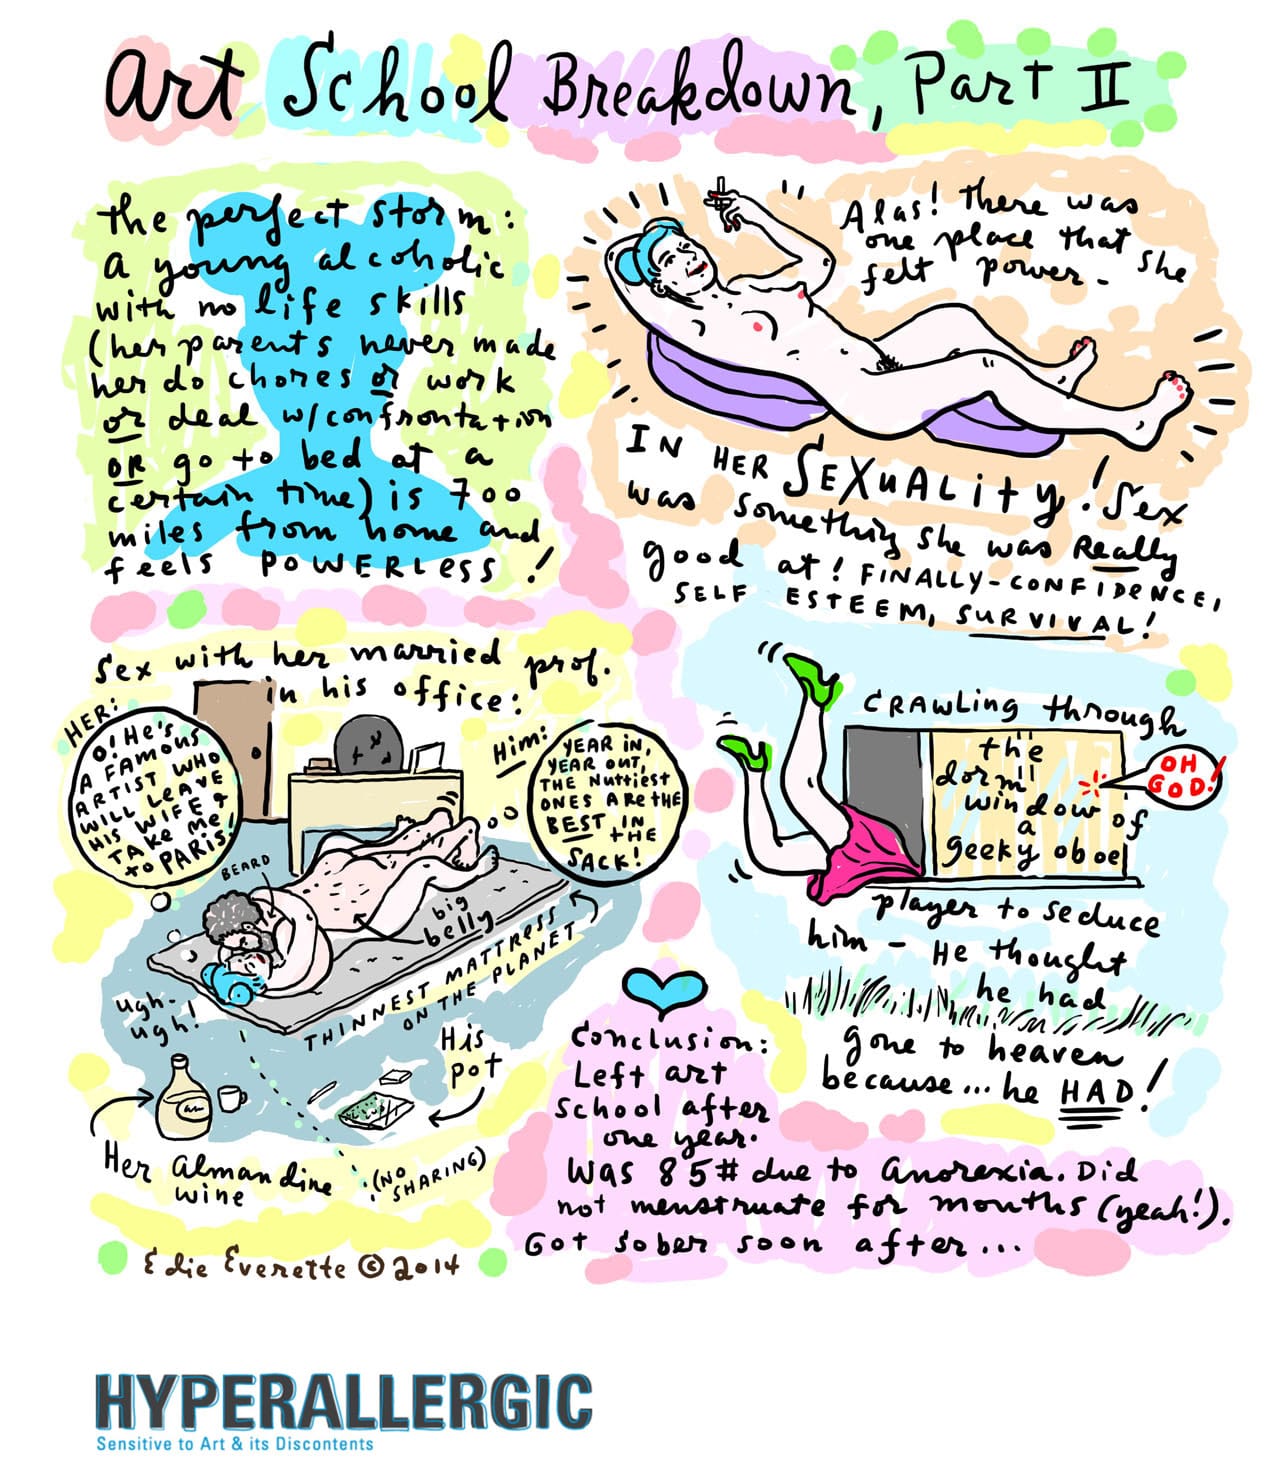 Art School Breakdown, Part II
the perfect storm:
a young alcoholic
with no life skills
(her parents never made
her do chores or work
or deal w/confrontation
OR go to bed at a
certain time) is 700
miles from home and
feels POWERLESS!
Alas! there was
one place that she
felt power-
IN HER SEXUALITY! Sex
was something she was Really
good at! FINALLY-CONFIDENCE,
SELF ESTEEM, SURVIVAL!
Sex with her married prof.
in his office:
HER:
O! He's
A FAMOUS
ARTIST WHO
WILL LEAVE
HIS WIFE &
TAKE ME
to PARIS!
Him:
YEAR IN,
YEAR OUT,
THE Nuttiest
ONES ARE THE
BEST IN
THE
SACK!
BEARD
big
belly
THINNEST MATTRESS
ON THE PLANET
ugh-
ugh!
His
pot
Her almandine
wine
(NO
SHARING)
CRAWLING through
the
dorm
window of
a
geeky oboe
OH
GOD!
player to seduce
him - He thought
he had
gone to heaven
because... he HAD!
Conclusion:
Left art
school after
one year.
Was 85# due to Anorexia. Did
not menstruate for months (yeah!).
Got sober soon after...
Edie Everette © 2014
HYPERALLERGIC
Sensitive to Art & its Discontents